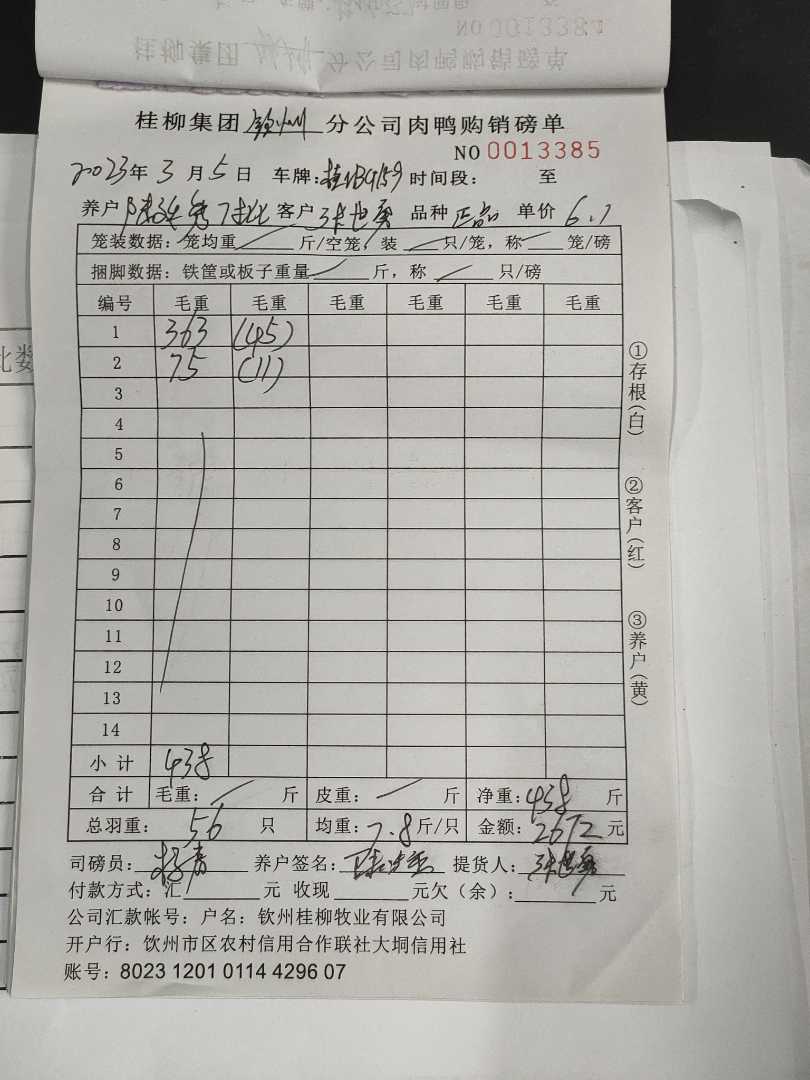 桂柳集团 钦州 分公司肉鸭购销磅单
NO 0013385
2023年 3 月 5 日 车牌: 时间段: 至
养户 客户 张世勇 品种 正品 单价 6.1
笼装数据: 笼均重 斤/空笼, 装 只/笼, 称 笼/磅
捆脚数据: 铁筐或板子重量 斤, 称 只/磅
编号 毛重 毛重 毛重 毛重 毛重 毛重
1 363 (45)
2 75 (11)
3
4
5
6
7
8
9
10
11
12
13
14
小 计 438
合 计 毛重: 斤 皮重: 斤 净重: 438 斤
总羽重: 56 只 均重: 7.8 斤/只 金额: 2672 元
司磅员: 养户签名: 提货人: 张世勇
付款方式: 汇 元 收现 元欠(余): 元
公司汇款帐号: 户名: 钦州桂柳牧业有限公司
开户行: 饮州市区农村信用合作联社大垌信用社
账号: 8023 1201 0114 4296 07
①存根(白)
②客户(红)
③养户(黄)